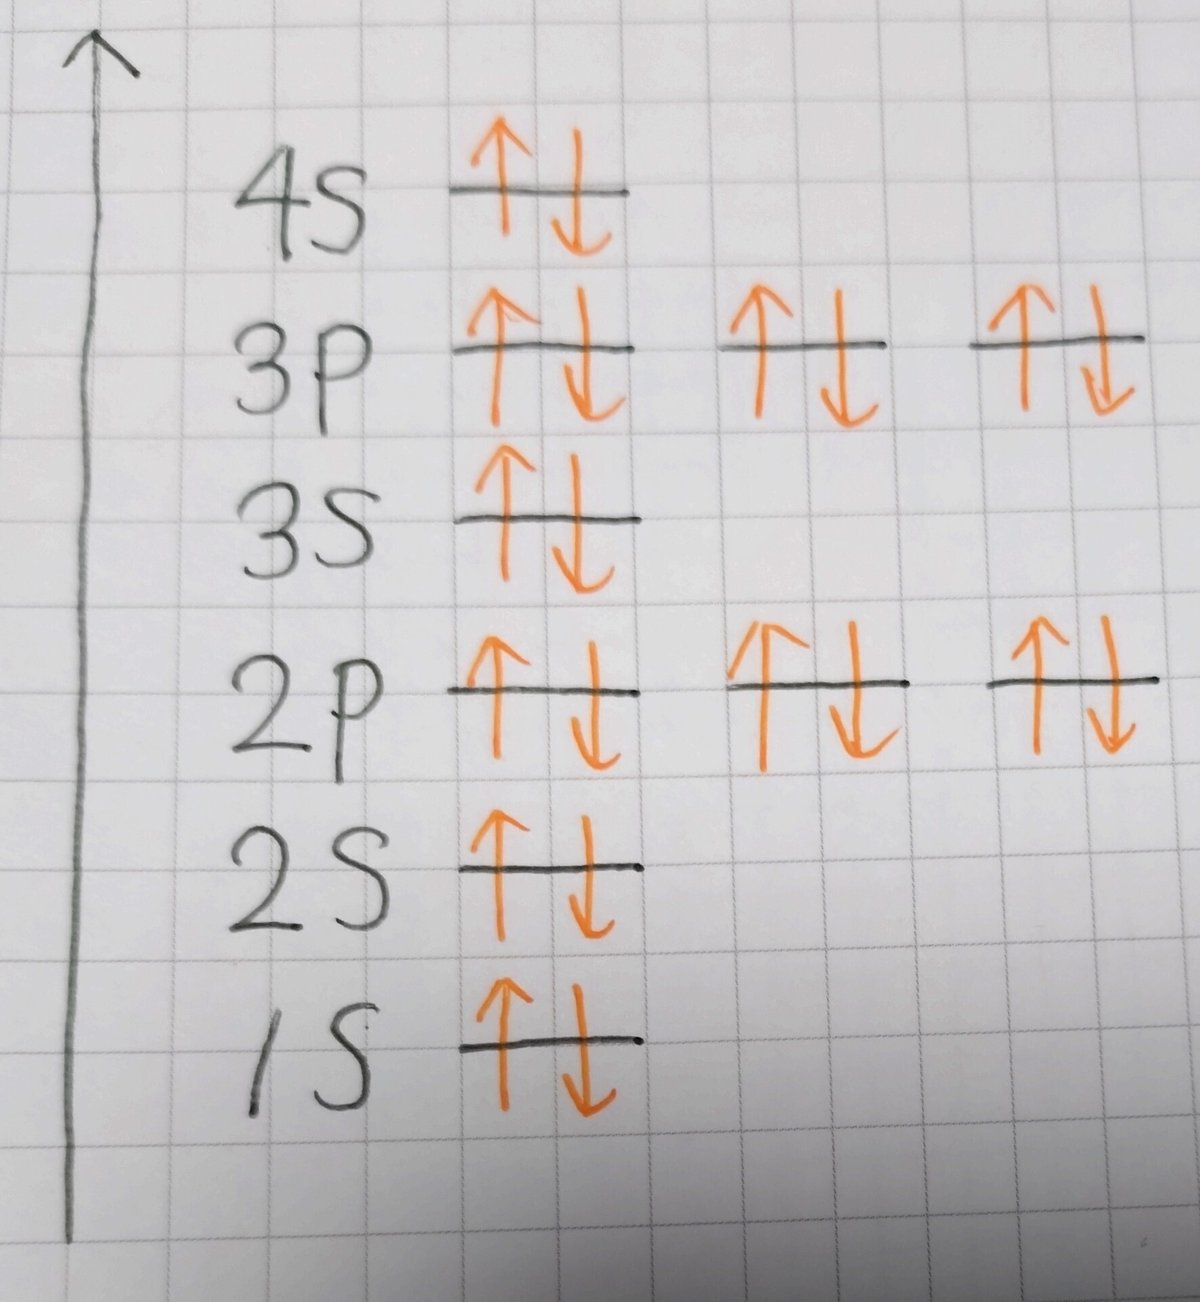 4S ↑↓
3P ↑↓ ↑↓ ↑↓
3S ↑↓
2P ↑↓ ↑↓ ↑↓
2S ↑↓
1S ↑↓